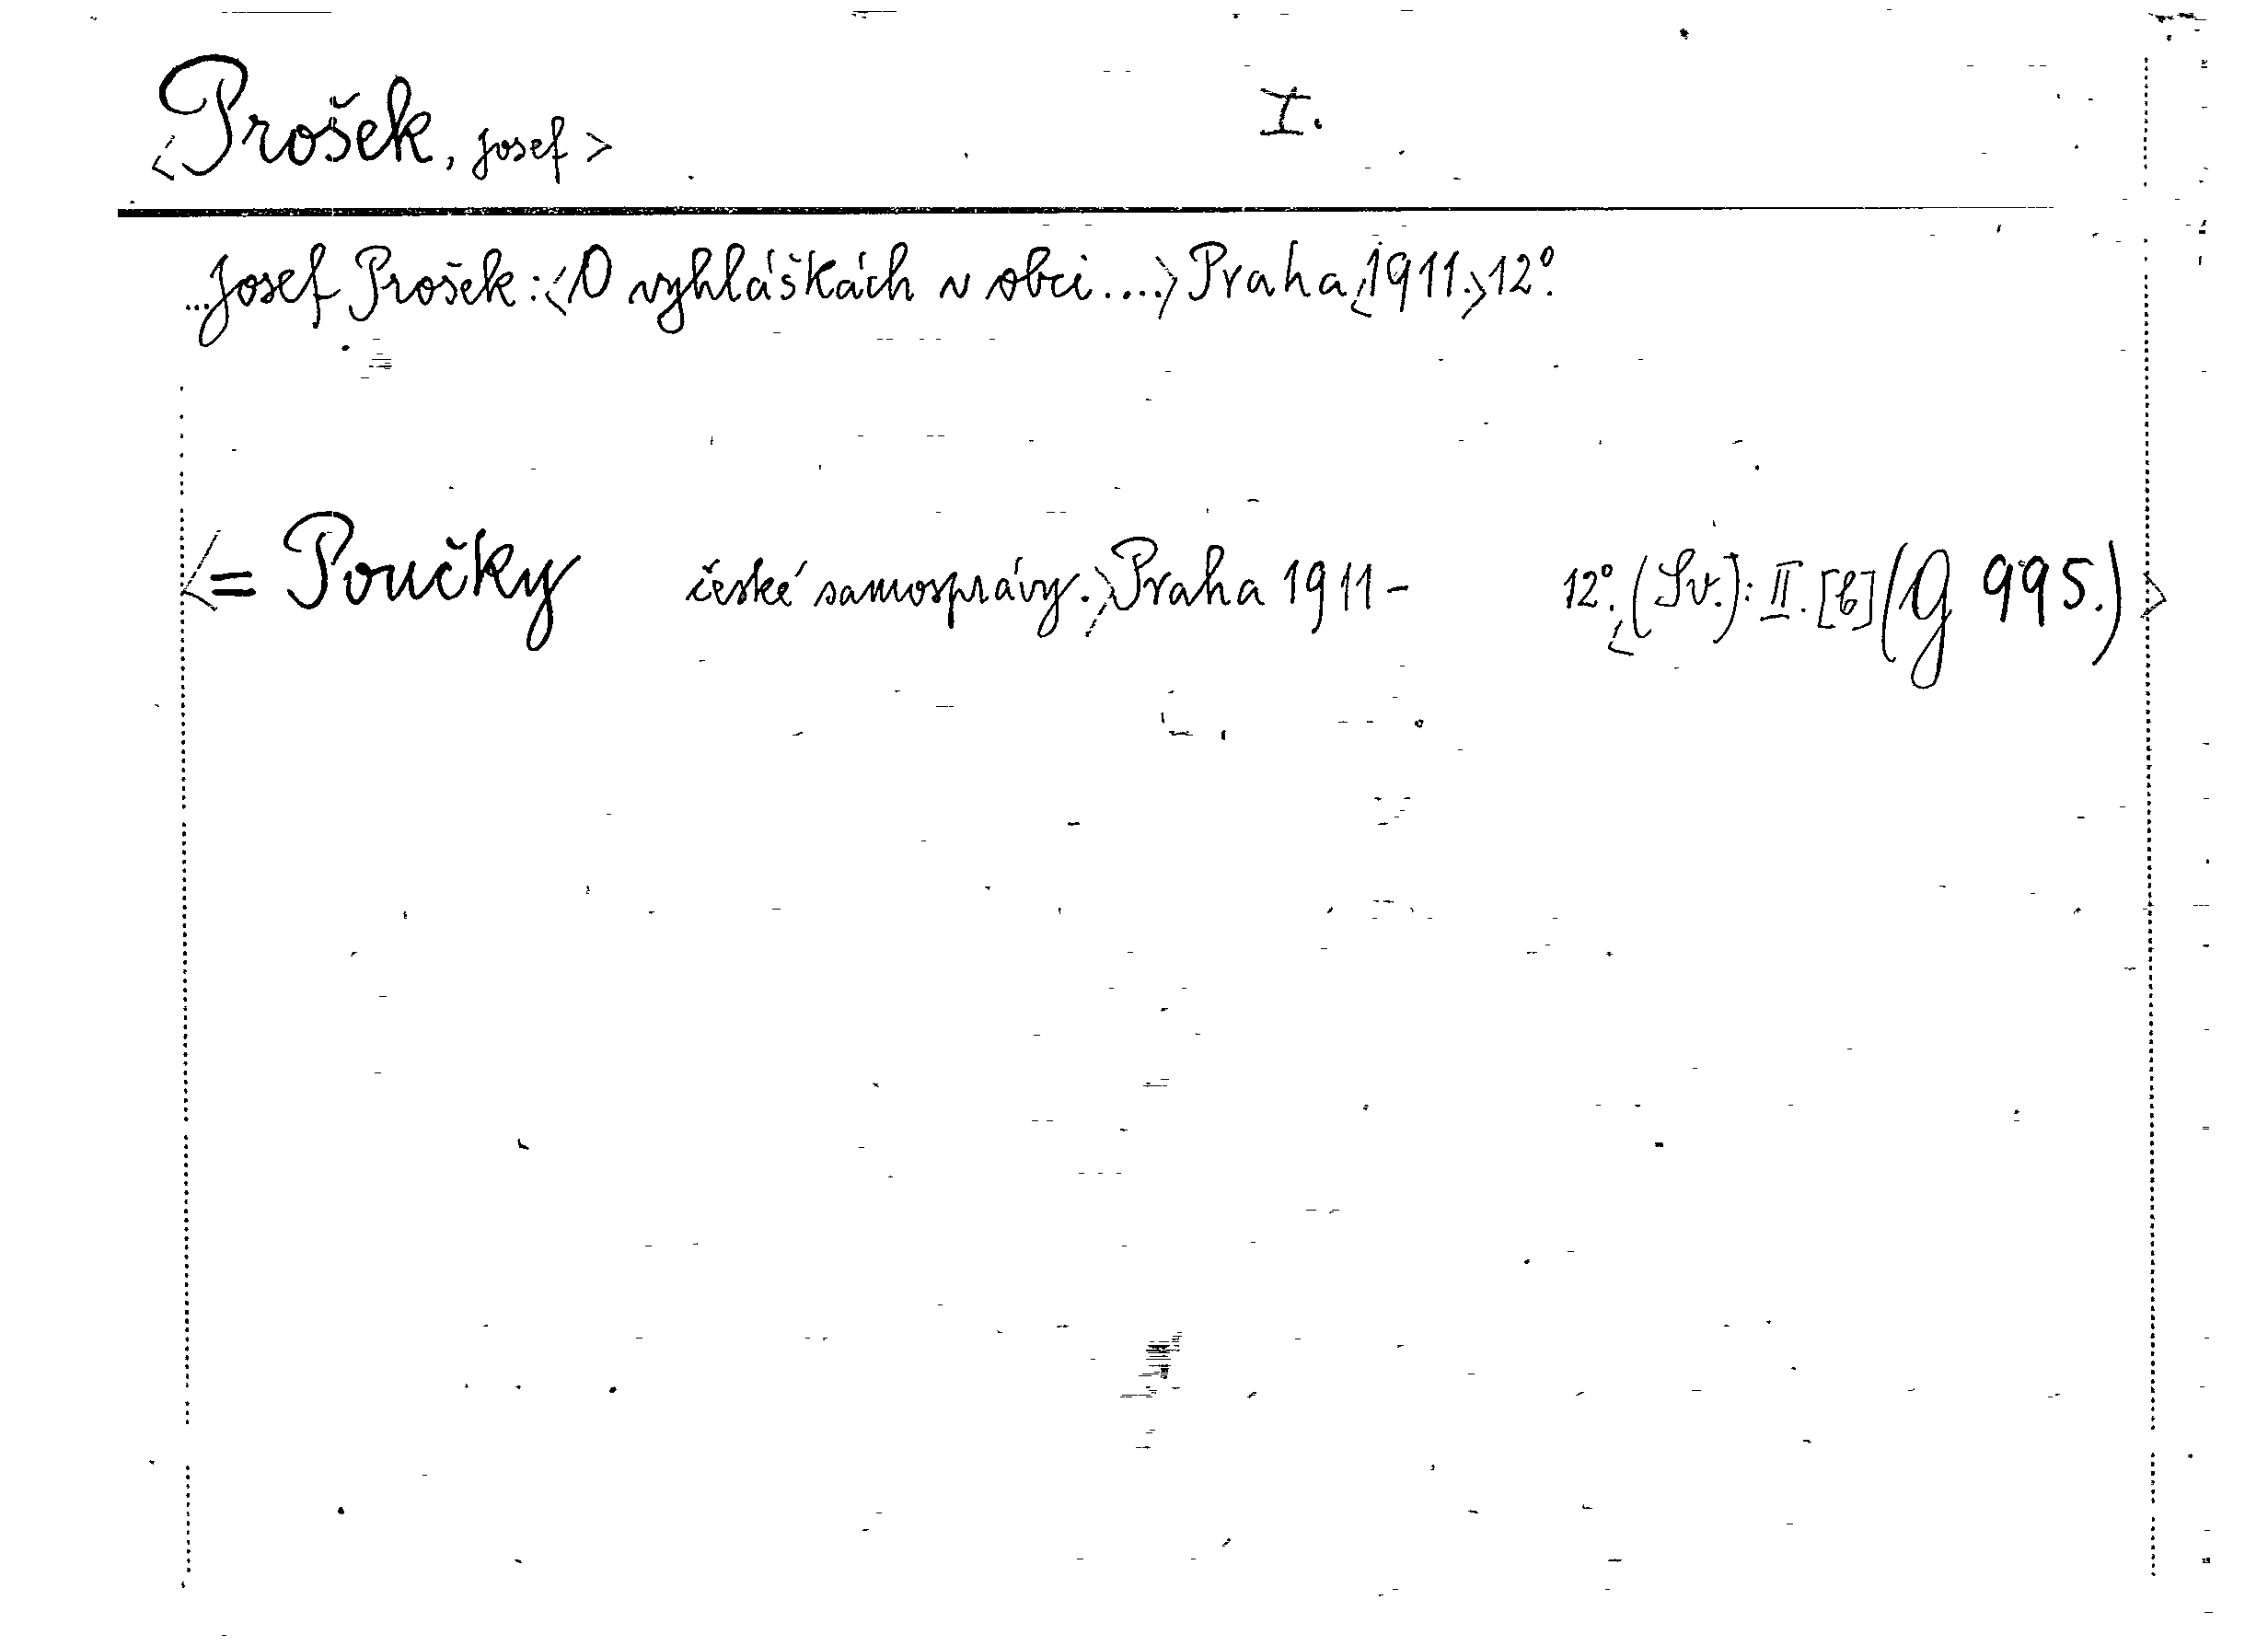 <Prošek, Josef> I.
...Josef Prošek: <O vyhláškách v obci....> Praha <1911.> 12°.
<= Poučky české samosprávy.> Praha 1911- 12°. <(Sv.): II. [6] (G 995.)>